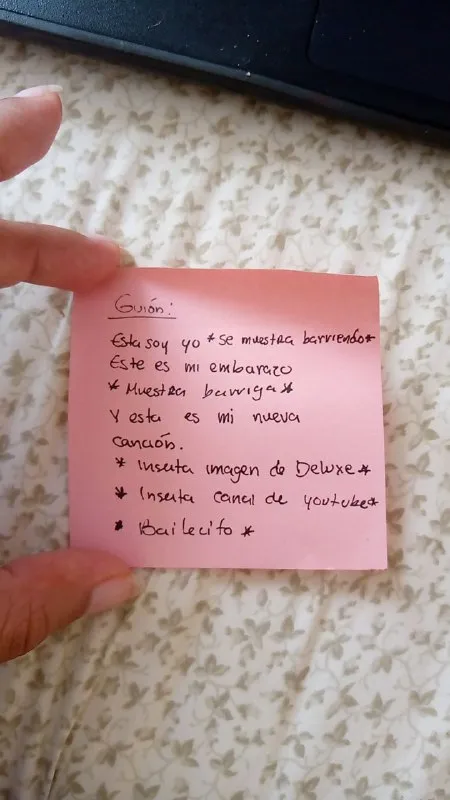 Guión:
Esta soy yo *se muestra barriendo*
Este es mi embarazo
* Muestra barriga *
Y esta es mi nueva
canción.
* Inserta imagen de Deluxe *
* Inserta canal de youtube *
* Bailecito *